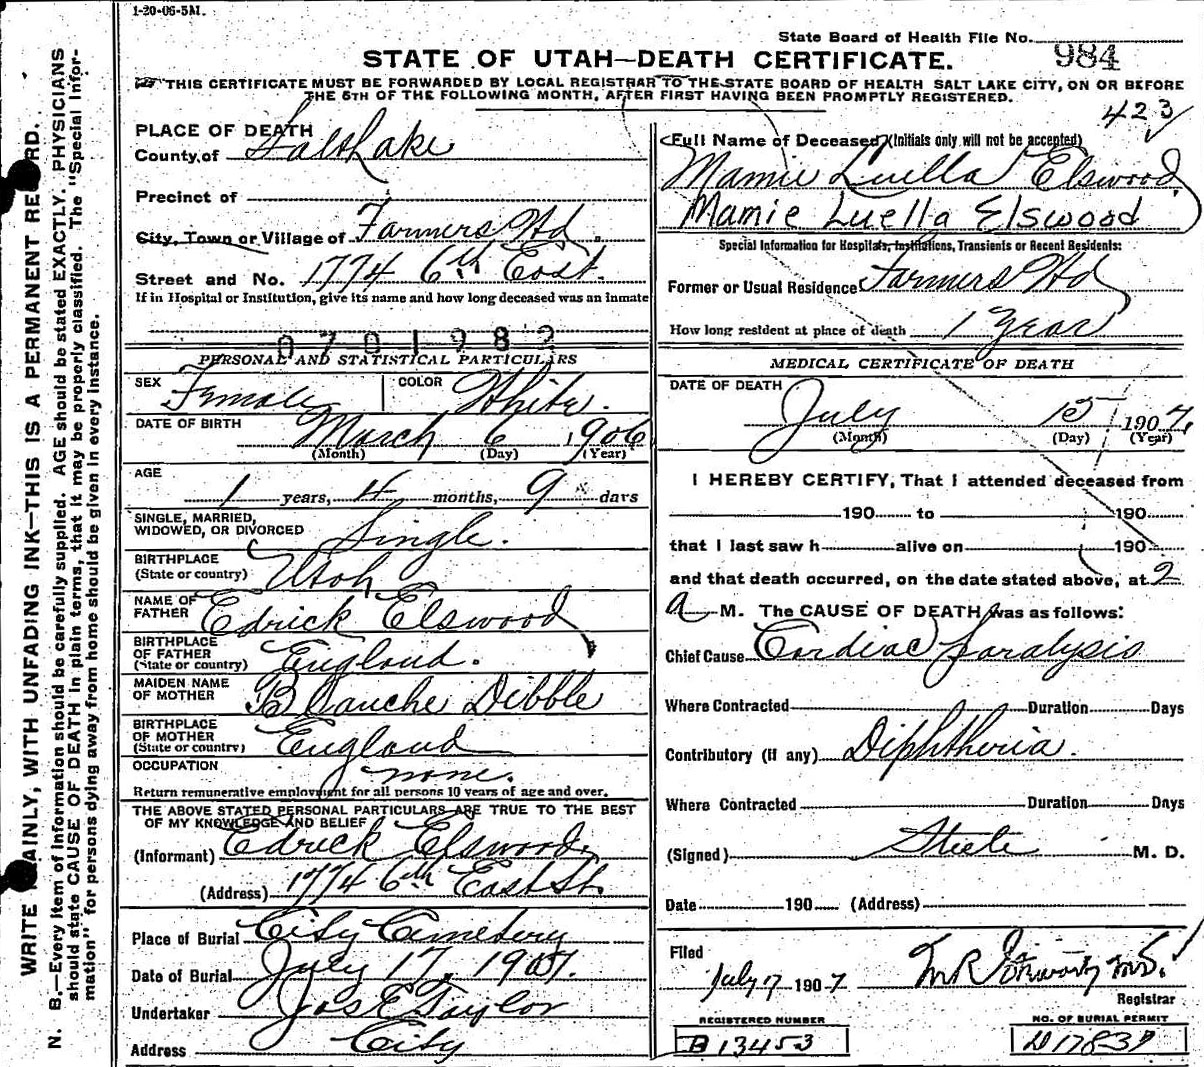 1-20-06-5M.
State Board of Health File No. 984
STATE OF UTAH—DEATH CERTIFICATE.
THIS CERTIFICATE MUST BE FORWARDED BY LOCAL REGISTRAR TO THE STATE BOARD OF HEALTH SALT LAKE CITY, ON OR BEFORE
THE 5TH OF THE FOLLOWING MONTH, AFTER FIRST HAVING BEEN PROMPTLY REGISTERED.
423
WRITE PLAINLY, WITH UNFADING INK—THIS IS A PERMANENT RECORD.
N. B.—Every item of information should be carefully supplied. AGE should be stated EXACTLY. PHYSICIANS
should state CAUSE OF DEATH in plain terms, that it may be properly classified. The "Special Infor-
mation" for persons dying away from home should be given in every instance.
PLACE OF DEATH
County of Salt Lake
Precinct of
City, Town or Village of Farmers Wd.
Street and No. 1774 6th East.
If in Hospital or Institution, give its name and how long deceased was an inmate
0701982
PERSONAL AND STATISTICAL PARTICULARS
SEX Female COLOR White.
DATE OF BIRTH March 6 1906
(Month) (Day) (Year)
AGE
1 years, 4 months, 9 days
SINGLE, MARRIED,
WIDOWED, OR DIVORCED Single.
BIRTHPLACE
(State or country) Utah
NAME OF
FATHER Edrick Elswood
BIRTHPLACE
OF FATHER
(State or country) England.
MAIDEN NAME
OF MOTHER Blanche Dibble
BIRTHPLACE
OF MOTHER
(State or country) England
OCCUPATION none.
Return remunerative employment for all persons 10 years of age and over.
THE ABOVE STATED PERSONAL PARTICULARS ARE TRUE TO THE BEST
OF MY KNOWLEDGE AND BELIEF
(Informant) Edrick Elswood,
(Address) 1774 6th East St.
Place of Burial City Cemetery
Date of Burial July 17, 1907.
Undertaker Jos E Taylor
Address City
Full Name of Deceased (Initials only will not be accepted)
Mamie Luella Elswood
Mamie Luella Elswood
Special Information for Hospitals, Institutions, Transients or Recent Residents:
Former or Usual Residence Farmers Wd
How long resident at place of death 1 year
MEDICAL CERTIFICATE OF DEATH
DATE OF DEATH
July 15 1907,
(Month) (Day) (Year)
I HEREBY CERTIFY, That I attended deceased from
190 to 190
that I last saw h alive on 190
and that death occurred, on the date stated above, at 2
a M. The CAUSE OF DEATH was as follows:
Chief Cause Cardiac Paralysis
Where Contracted Duration Days
Contributory (if any) Diphtheria.
Where Contracted Duration Days
(Signed) Steele M. D.
Date 190 (Address)
Filed
July 1907 M.D.
Registrar
REGISTERED NUMBER
B 13453
NO. OF BURIAL PERMIT